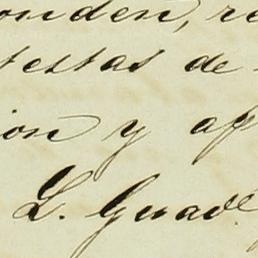 onden, re
testas de
ion y ap
L. Guade